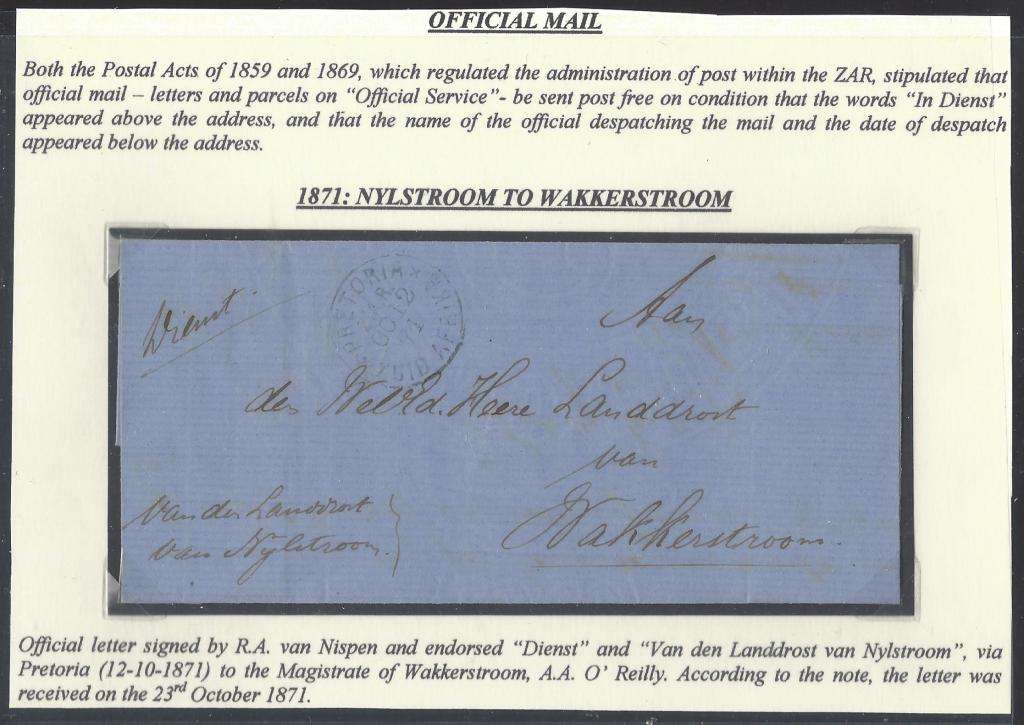 OFFICIAL MAIL
Both the Postal Acts of 1859 and 1869, which regulated the administration of post within the ZAR, stipulated that
official mail – letters and parcels on “Official Service”- be sent post free on condition that the words “In Dienst”
appeared above the address, and that the name of the official despatching the mail and the date of despatch
appeared below the address.
1871: NYLSTROOM TO WAKKERSTROOM
Dienst
PRETORIA
Aan
den Heere Landdrost
van
Wakkerstroom
van den Landdrost
van Nylstroom
Official letter signed by R.A. van Nispen and endorsed “Dienst” and “Van den Landdrost van Nylstroom”, via
Pretoria (12-10-1871) to the Magistrate of Wakkerstroom, A.A. O’ Reilly. According to the note, the letter was
received on the 23rd October 1871.